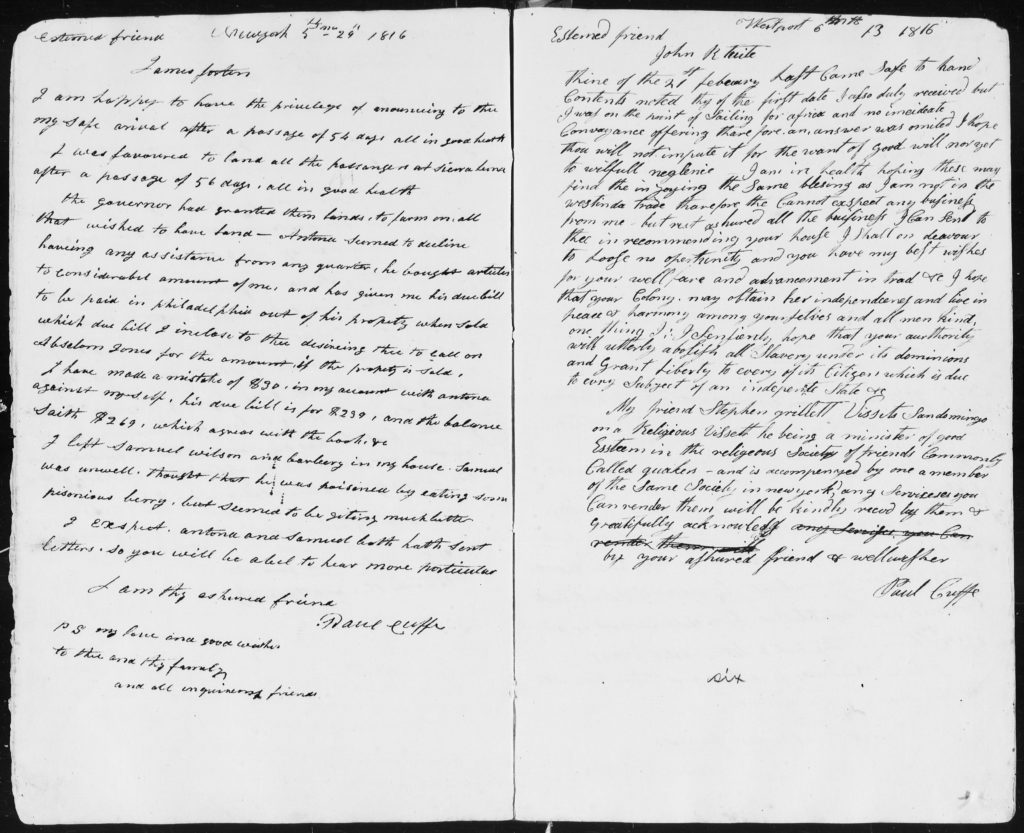 Esteemed friend Newyork 5th mo 29th 1816
James forten
I am happy to have the privelege of anouncing to thee
my Safe arival after a passage of 54 days all in good health
I was favoured to land all the passangers at Sierra leone
after a passage of 56 days, all in good health
the governor had granted them lands, to farm on, all
that wished to have land — Antona Seemed to decline
haveing any assistance from any quarter, he bought articles
to considerabel amount of me, and has given me his due bill
to be paid in philadelphia out of his propety when Sold
which due bill I inclose to thee desireing thee to call on
Abselom Jones for the amount, if the propety is Sold,
I have made a mistake of $30, in my account with antona
against myself, his due bill is for $239, and the balance
Saith $269, which agreas with the book, &c
I left Samuel wilson and barbery in my house. Samuel
was unwell. thought that he was poisoned by eating Som
pisonious berry, but seemed to be giting much better
I Exspect. antona and Samuel both hath Sent
letters. So you will be abel to hear more porticulas
I am thy ashured friend
Paul Cuffe
PS my love and good wishes
to thee and thy family
and all inquireing friends
Esteemed friend Westport 6th mth 13 1816
John R
thine of the 21st febeuary last Came Safe to hand
Contents noted thy of the first date I also duly received but
I was on the point of Sailing for africa and no imeideate
Convayance offering tharefore, an, answer was omited I hope
thou will not impute it for the want of good will nor yet
to wilfull neglence I am in health hoping these may
find the in joying the Same blesing as I am not in the
westindia trade tharefore the Cannot exspect any business
from me. but rest ashured all the business I Can Send to
thee in recommending your house I Shall en deavour
to loose no opertunity and you have my best wishes
for your well fare and advancement in trad &c I hope
that your Colony. may obtain her independencey and live in
peace & harmony among your selves and all men kind,
one thing I: I Sensiently hope that your authority
will utterly abolish all Slavery under its dominions
and Grant liberty to every of its Citizen which is due
to evry Subject of an State &c
My friend Stephen grillett Vissets Sandomingo
on a Religious Vissett he being a minister of good
Essteem in the relegeous Society of friends Commonly
Called quakers - and is accompenyed by one a member
of the Same Society in new york, any Serviceses you
Can render them will be kindly received by them &
Gratifully acknowledg any Servises you Can
render them will
by your ashured friend & wellwisher
Paul Cuffe
six